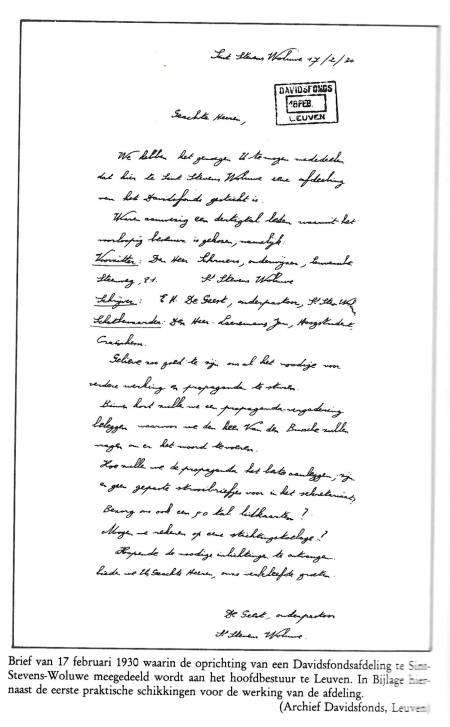 Sint Stevens Woluwe 17/2/30
DAVIDSFONDS
18 FEB.
LEUVEN
Geachte Heeren,
We hebben het genoegen U te mogen mededeelen
dat hier te Sint Stevens Woluwe eene afdeeling
van het Davidsfonds gesticht is.
Waren aanwezig een dertigtal leden waaruit het
voorloopig bestuur is gekozen, namelijk:
Voorzitter: De Heer onderwijzer, Leuvensche
Steenweg, St Stevens Woluwe
Schrijver: E.H. De Geest, onderpastoor, St Stev. Wol.
Schatbewaarder: Den Heer Jan, Hoogstudent
Crainhem.
Gelieve zoo goed te zijn om al het noodige voor
verdere werking en propaganda te sturen.
Binnen kort zullen we een propagandavergadering
beleggen waarvoor we den heer Van den Bussche zullen
vragen om er het woord te voeren.
Hoe zullen we de propaganda het beste aanleggen; zijn
er geen gepaste strooibriefjes voor in het sekretariaat,
Bezorg ons ook een 50 tal lidkaarten?
Mogen we rekenen op eene stichtingstoelage?
Hopende de noodige inlichtingen te ontvangen
bieden we U, Geachte Heeren, onze verkleefde groeten.
De Geest, onderpastoor
St Stevens Woluwe.
Brief van 17 februari 1930 waarin de oprichting van een Davidsfondsafdeling te Sint-
Stevens-Woluwe meegedeeld wordt aan het hoofdbestuur te Leuven. In Bijlage hier-
naast de eerste praktische schikkingen voor de werking van de afdeling.
(Archief Davidsfonds, Leuven)